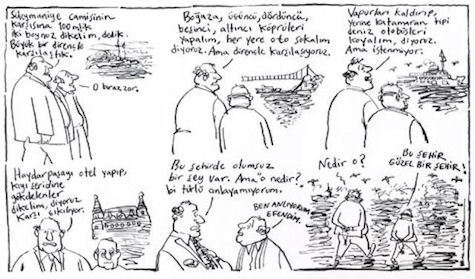 Süleymaniye Camisinin
karşısına 100 mtlik
iki beynoz dikelim, dedik.
Büyük bir dirençle
karşılaştık.
O biraz zor.
Boğaza, üçüncü, dördüncü,
beşinci, altıncı köprüleri
yapalım, her yere oto sokalım
diyoruz. Ama dirençle karşılaşıyoruz.
Vapurları kaldırıp,
yerine katamaran tipi
deniz otobüsleri
koyalım, diyoruz.
Ama istenmiyor.
Haydarpaşayı otel yapıp,
kıyı şeridine
gökdelenler
dikelim, diyoruz
karşı çıkılıyor.
Bu şehirde olumsuz
bir şey var. Ama o nedir?
bi türlü anlayamıyorum.
BEN ANLIYORUM
EFENDİM.
Nedir o?
BU ŞEHİR
GÜZEL BİR ŞEHİR!